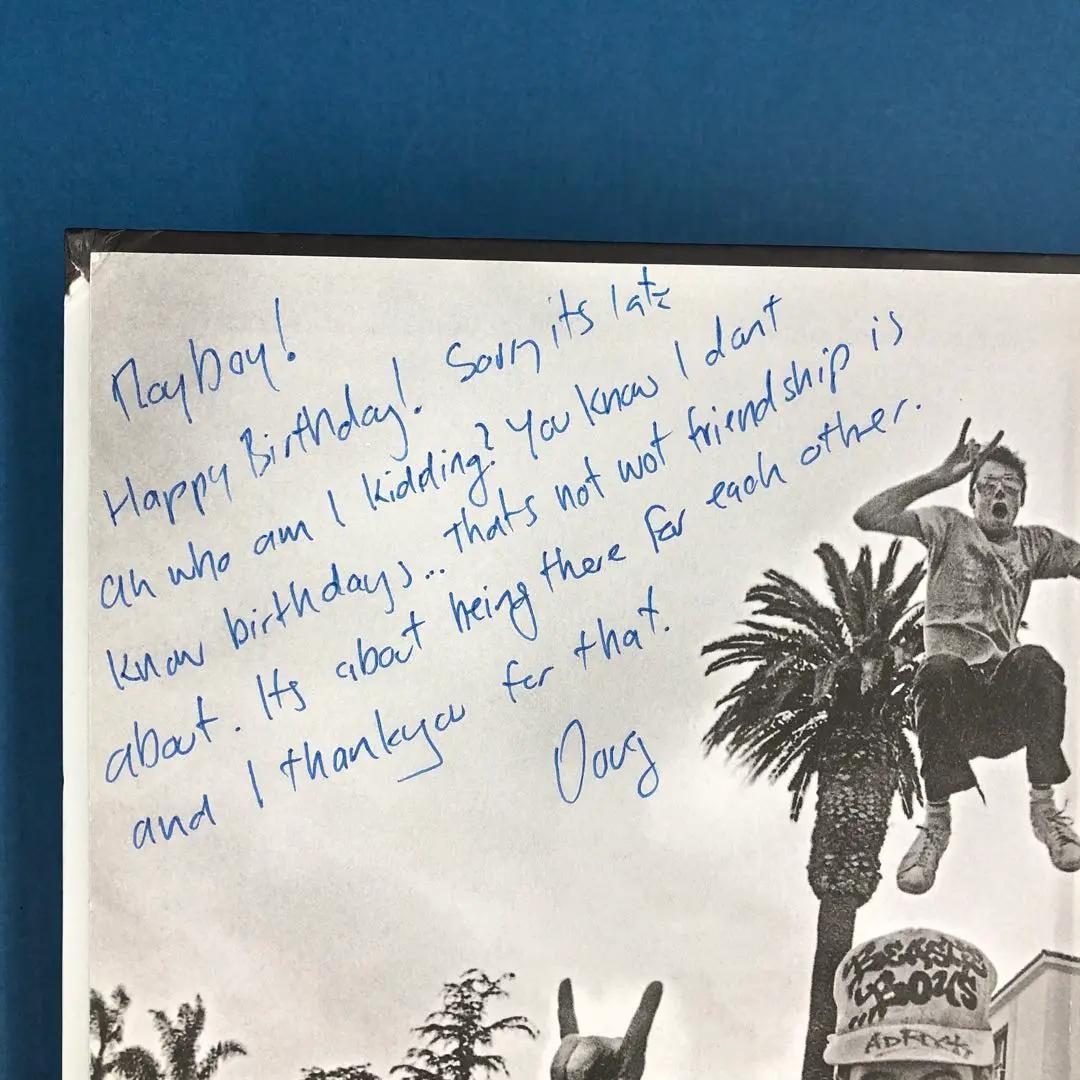 Mayboy!
Happy Birthday! Sorry its late
ah who am I kidding? You know I dont
know birthdays... thats not wot friendship is
about. Its about being there for each other.
and I thankyou for that.
Doug
BEASTIE
BOYS
ADROCK